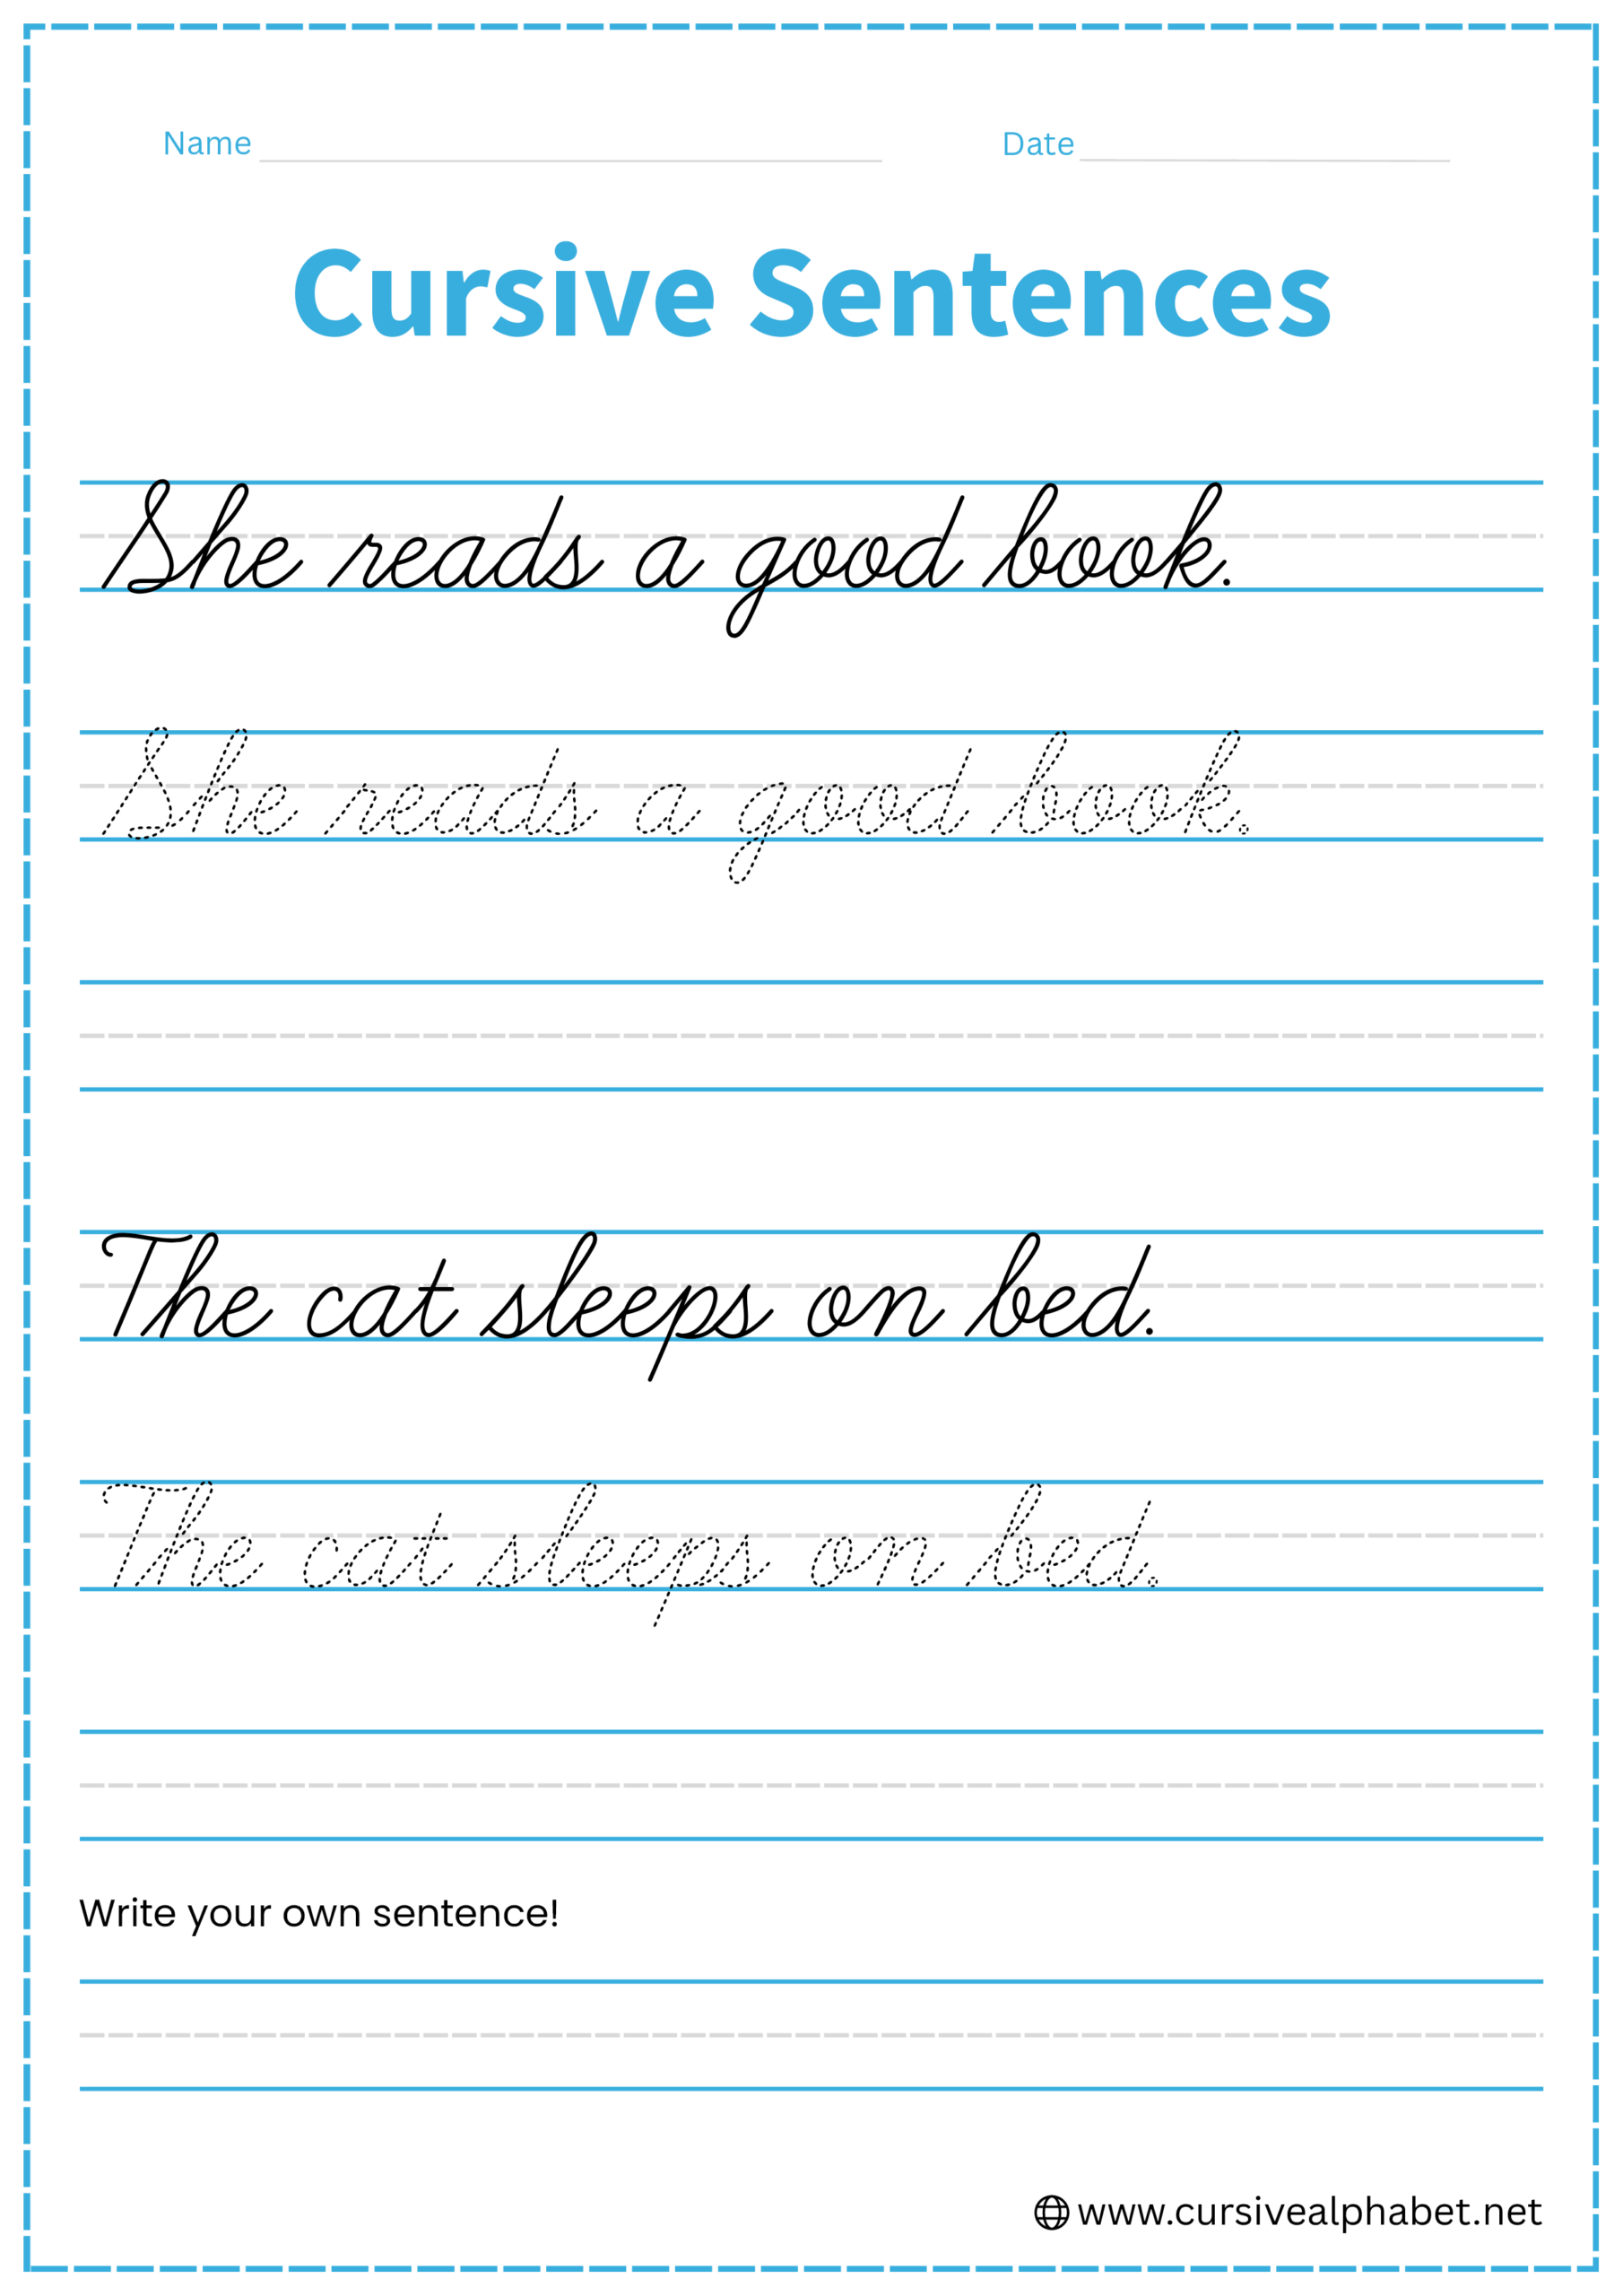 Name Date
Cursive Sentences
She reads a good book.
She reads a good book.
The cat sleeps on bed.
The cat sleeps on bed.
Write your own sentence!
www.cursivealphabet.net